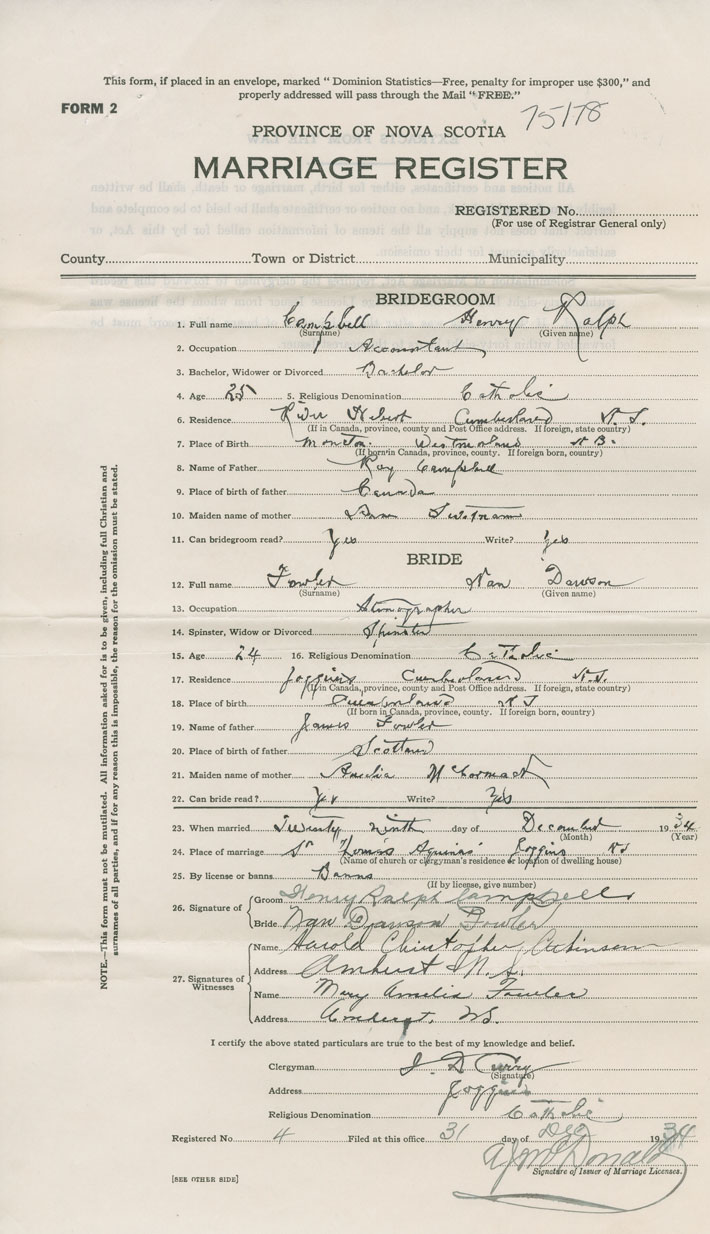 This form, if placed in an envelope, marked " Dominion Statistics—Free, penalty for improper use $300," and
properly addressed will pass through the Mail " FREE."
FORM 2
75178
PROVINCE OF NOVA SCOTIA
MARRIAGE REGISTER
REGISTERED No.
(For use of Registrar General only)
County Town or District Municipality
BRIDEGROOM
1. Full name Campbell Henry Ralph
(Surname) (Given name)
2. Occupation Accountant
3. Bachelor, Widower or Divorced Bachelor
4. Age 25 5. Religious Denomination Catholic
6. Residence River Hebert Cumberland N.S.
(If in Canada, province, county and Post Office address. If foreign, state country)
7. Place of Birth Moncton. Westmorland N B.
(If born in Canada, province, county. If foreign born, country)
8. Name of Father Roy Campbell
9. Place of birth of father Canada
10. Maiden name of mother
11. Can bridegroom read? Yes Write? Yes
BRIDE
12. Full name Fowler Nan Dawson
(Surname) (Given name)
13. Occupation Stenographer
14. Spinster, Widow or Divorced Spinster
15. Age 24 16. Religious Denomination Catholic
17. Residence Joggins Cumberland N.S.
(If in Canada, province, county and Post Office address. If foreign, state country)
18. Place of birth Cumberland N S
(If born in Canada, province, county. If foreign born, country)
19. Name of father James Fowler
20. Place of birth of father Scotland
21. Maiden name of mother Amelia McCormack
22. Can bride read? Yes Write? Yes
23. When married Twenty ninth day of December 1934
(Month) (Year)
24. Place of marriage St Thomas Aquinas' Joggins NS
(Name of church or clergyman's residence or location of dwelling house)
25. By license or banns Banns
(If by license, give number)
26. Signature of
Groom Henry Ralph Campbell
Bride Nan Dawson Fowler
27. Signatures of Witnesses
Name Harold Christopher Atkinson
Address Amherst N.S.
Name Mary Amelia Fowler
Address Amherst, N.S.
I certify the above stated particulars are true to the best of my knowledge and belief.
Clergyman J. D Curry
(Signature)
Address Joggins
Religious Denomination Catholic
Registered No 4 Filed at this office 31 day of Dec 1934
A J McDonald
Signature of Issuer of Marriage Licenses.
[SEE OTHER SIDE]
NOTE.—This form must not be mutilated. All information asked for is to be given, including full Christian and
surnames of all parties, and if for any reason this is impossible, the reason for the omission must be stated.